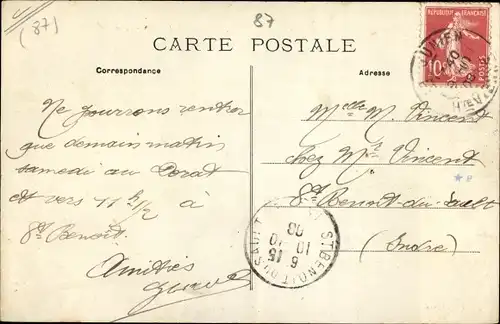 (87)
87
CARTE POSTALE
Correspondance
Adresse
RÉPUBLIQUE FRANÇAISE
10c
Ne pourrons rentrer
que demain matin
samedi au Dorat
et vers 11 h 1/2 à
St Benoit.
Amitiés
Melle M. Vincent
chez Mr Vincent
St Benoit-du-Sault
(Indre)
* 8
ST BENOIT DU SAULT
6 15
10 10
08